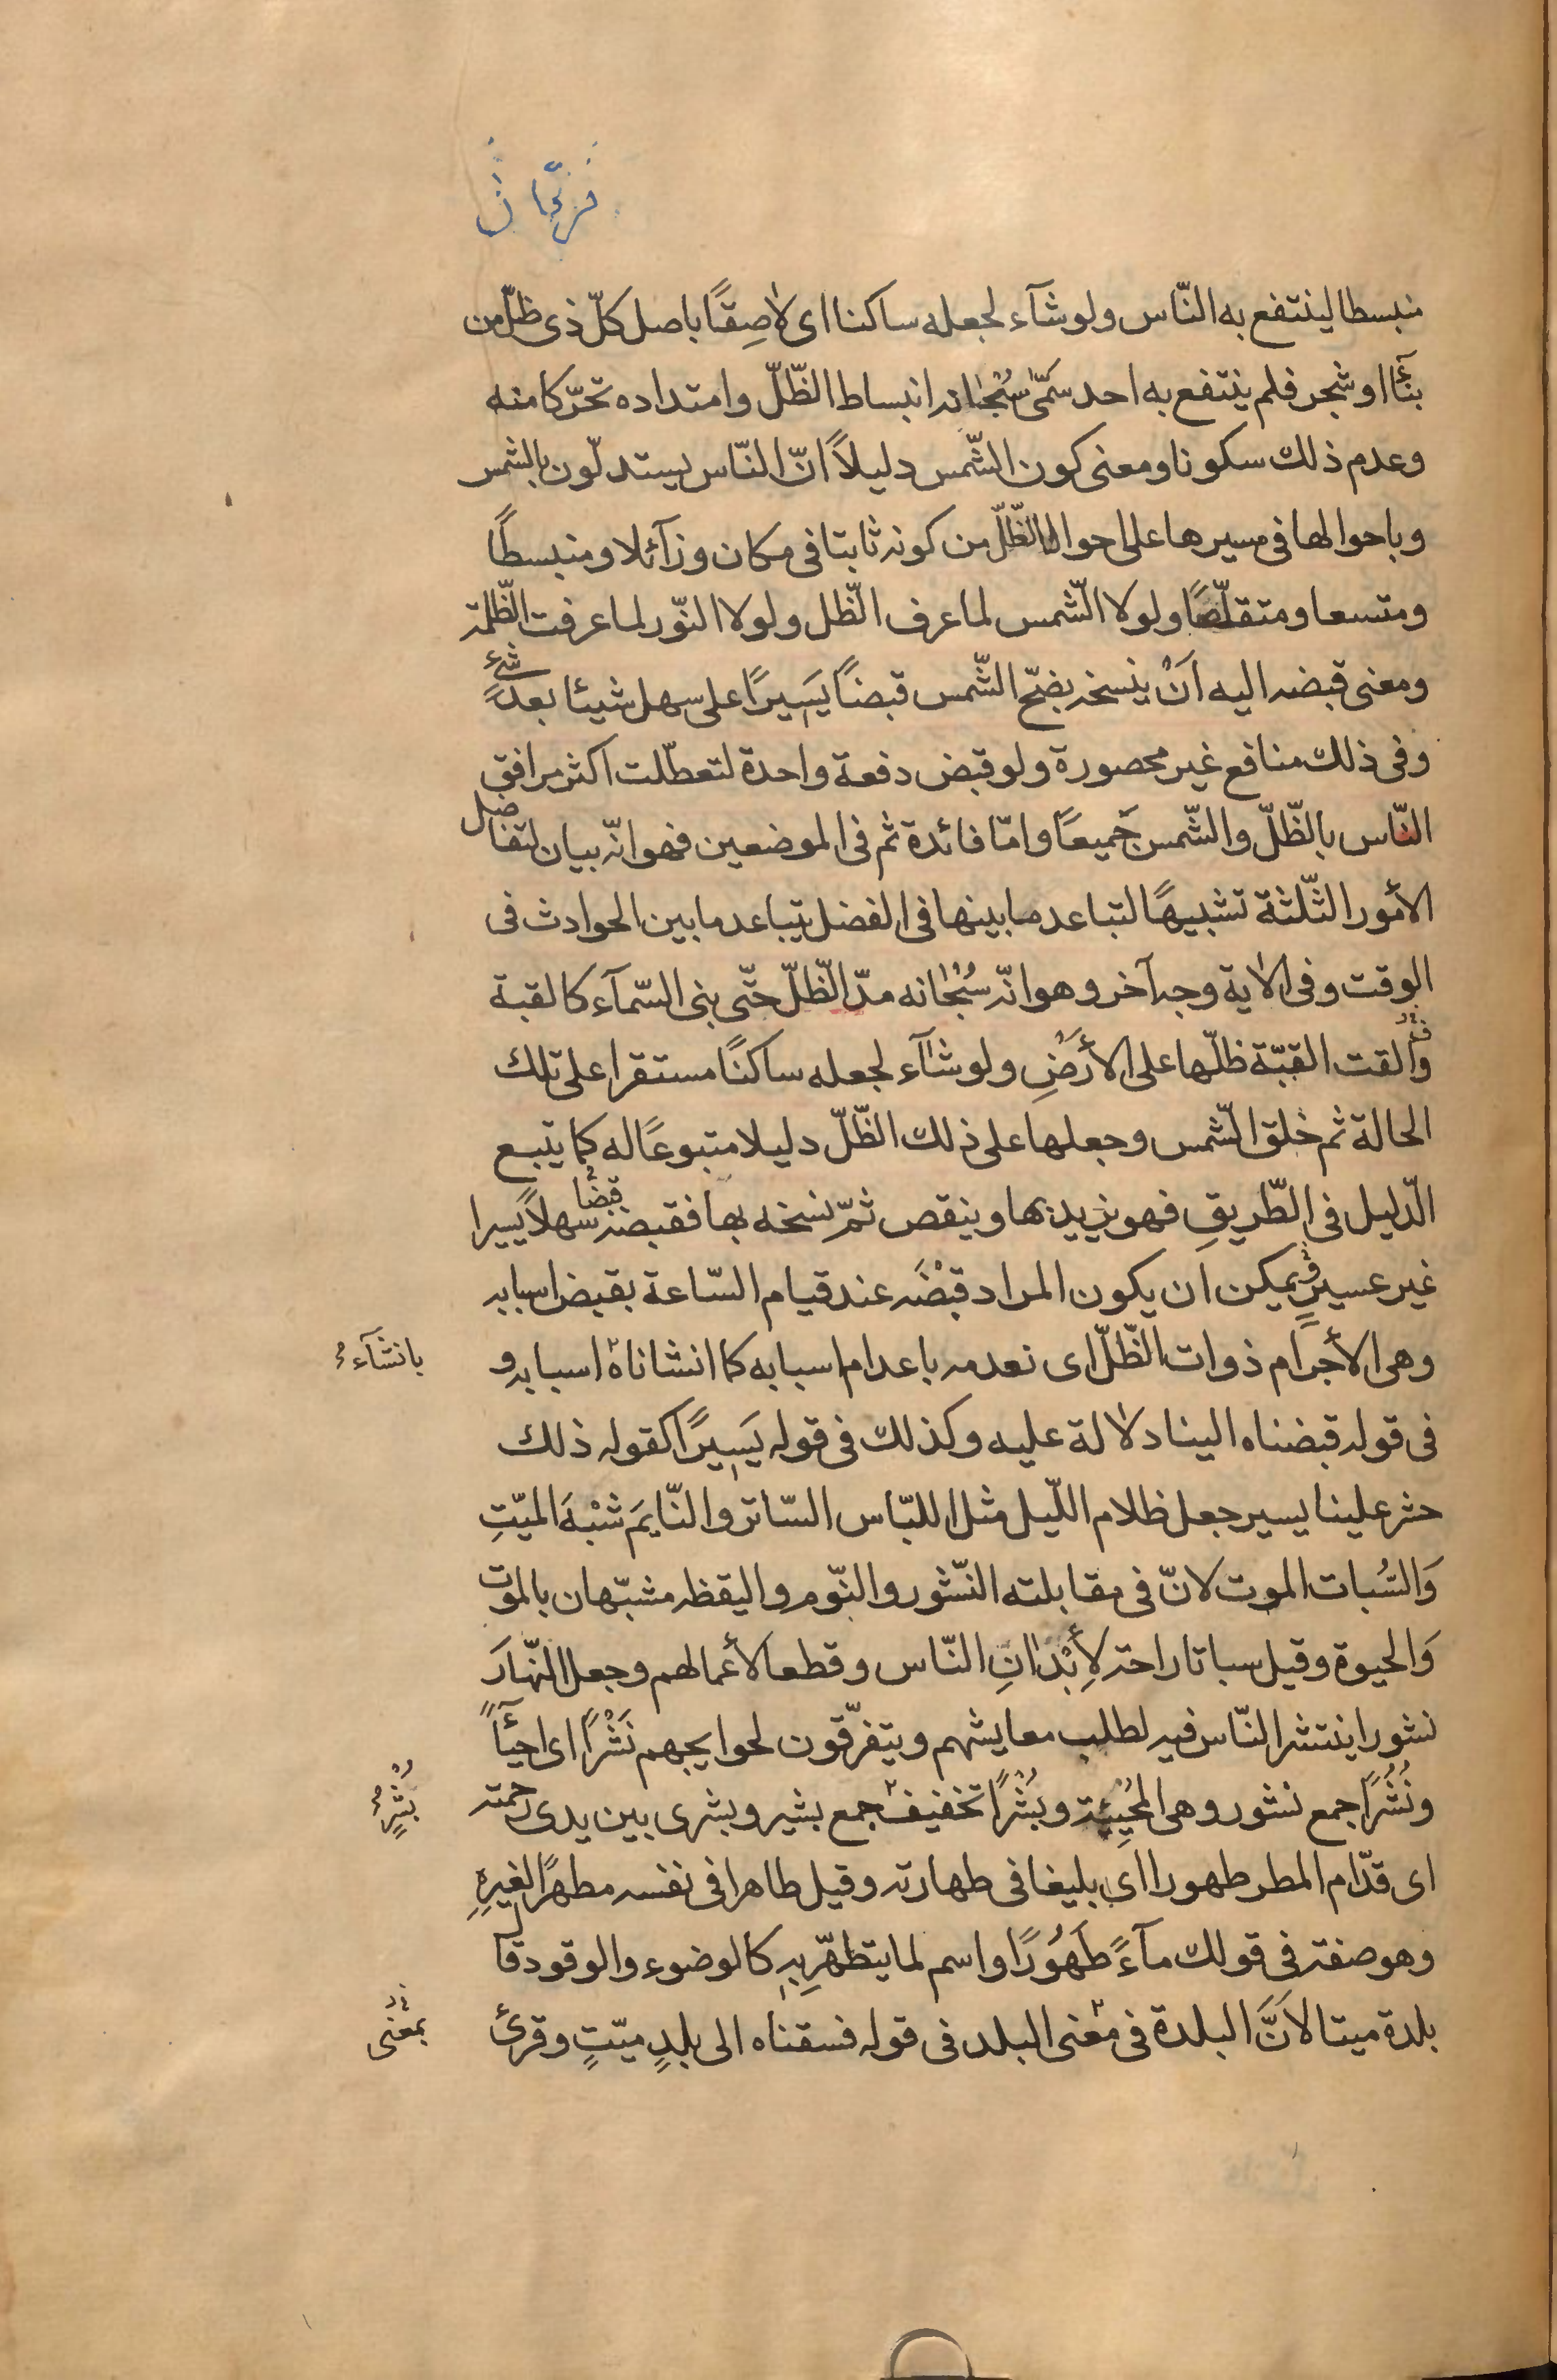 منبسطا لينتفع به النّاس ولو شآء لجعله ساكنا اى لاصِقًا باصل كلّ ذى ظلّ من
بنآءٍ او شجر فلم ينتفع به احد سمّى سُبْحٰانه انبساط الظّلّ وامتداده تحرّكا منه
وعدم ذلك سكونا ومعنى كون الشّمس دليلاً انّ النّاس يستدلّون بالشمس
وباحوالها فى مسيرها على احوال الظّلّ من كونه ثابتا فى مكان وزآئلا ومنبسطًا
ومتسعا ومتقلّصًا ولولا الشّمس لما عرف الظّل ولولا النّور لما عرفت الظّلمة
ومعنى قبضه اليه اَنْ ينسخه بضحّ الشّمس قبضًا يَسِيرًا على سهل شيئا بعد شئ
وفى ذلك منافع غير محصورة ولو قبض دفعة واحدة لتعطّلت اكثر مرافق
النّاس بالظّلّ والشّمس جَميعًا وامّا فائدة ثم فى الموضعين فهو انّه بيان لتفاضل
الأمور الثّلثة تشبيهًا لتباعد ما بينها فى الفضل بتباعد ما بين الحوادث فى
الوقت وفى الاية وجه آخر وهو انّه سُبْحٰانه مدّ الظّلّ حتّى بنى السّمآء كالقبة
والقت القبّة ظلّها على الأَرْضِ ولو شآء لجعله ساكنًا مستقرا على تلك
الحالة ثم خلق الشّمس وجعلها على ذلك الظّلّ دليلا متبوعًا له كما يتبع
الدّليل فى الطّريقِ فهو يزيد بها وينقص ثمّ نسخه بها فقبضه قبضًا سهلاً يسيرا
غير عسيرٍ ويمكن ان يكون المراد قبْضَه عند قيام السّاعة بقبض اسبابه
وهى الأجرَام ذوات الظّلّ اى نعدمه باعدام اسبابه كما انشاناه اسبابه و
بانشآء
فى قوله قبضناه الينا دلالة عليه وكذلك فى قوله يَسِيرًا كقوله ذلك
حشر علينا يسير جعل ظلام اللّيل مثل اللبّاس السّاتر والنّايمَ شبْهَ الميّتِ
وَالسُّبات الموت لانّ فى مقابلته النّشور والنّوم واليقظه مشبّهان بالموت
وَالحيوة وقيل سباتا راحة لأِبْدٰانِ النّاس وقطعا لأعمالهم وجعل النّهارَ
نشورا ينتشر النّاس فيه لطلب معايشهم ويتفرّقون لحوايجهم نَشْرًا اى احيآءً
ونُشُرًا جمع نشور وهى المُحْيِيَة وبُشْرًا تخفيف جمع بشير وبشرى بين يدى رحمته
بُشُرٍ
اى قدّام المطر طهورا اى بليغا فى طهارته وقيل طاهرا فى نفسه مطهرًا لغيرِهِ
وهو صفة فى قولك مآءً طَهُورًا واسم لما يتطهّر بِهِ كالوضوء والوقود قال
بلدة ميتا لاَنَّ البلدة فى معنى البلد فى قوله فسقناه الى بلدٍ ميّتٍ وقرئ
بمعنى